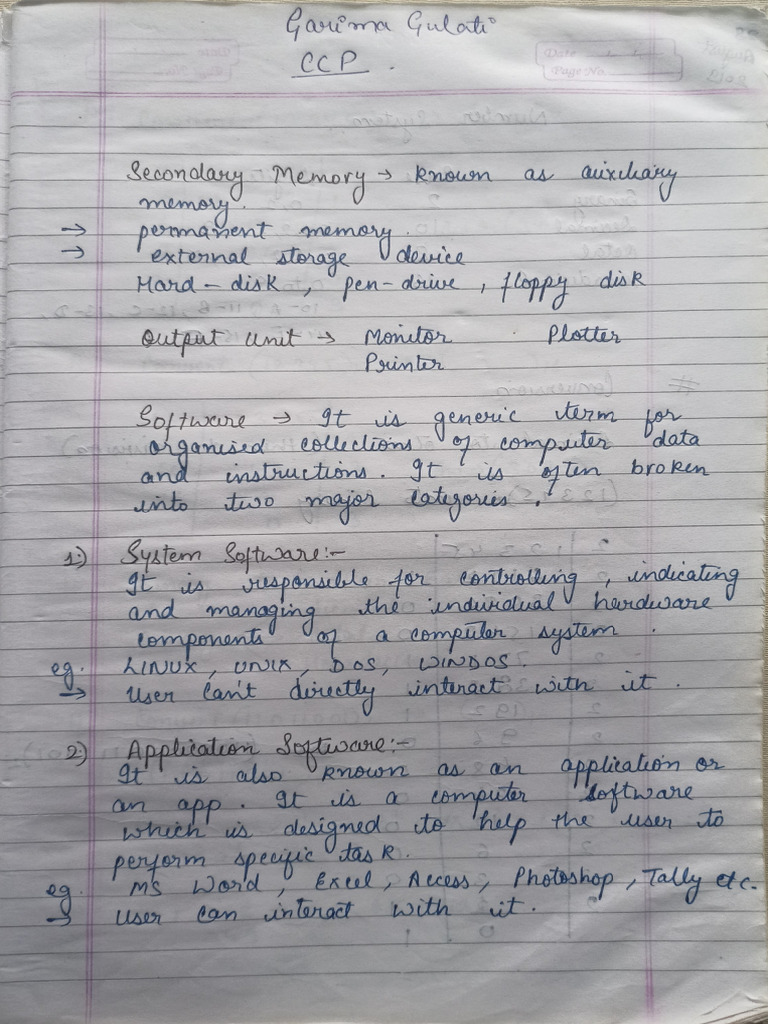 Garima Gulati
CCP.
Date
Page No.
Secondary Memory → known as auxiliary
memory.
→ permanent memory.
→ external storage device
Hard-disk, pen-drive, floppy disk
Output Unit → Monitor Plotter
Printer
Software → It is generic term for
organised collections of computer data
and instructions. It is often broken
into two major categories.
1:) System Software:-
It is responsible for controlling, indicating
and managing the individual hardware
components of a computer system.
eg. LINUX, UNIX, DOS, WINDOS.
→ User can't directly interact with it.
2) Application Software:-
It is also known as an application or
an app. It is a computer software
which is designed to help the user to
perform specific task.
eg. MS Word, Excel, Access, Photoshop, Tally etc.
→ User can interact with it.